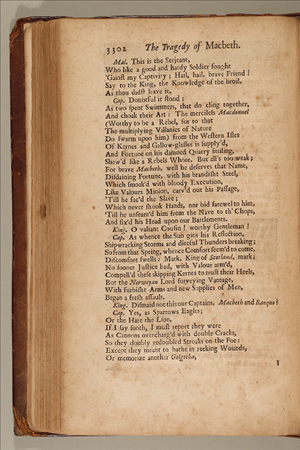 3302 The Tragedy of Macbeth.
Mal. This is the Serjeant,
Who like a good and hardy Soldier fought
'Gainst my Captivity: Hail, hail, brave Friend!
Say to the King, the Knowledge of the broil,
As thou didst leave it.
Cap. Doubtful it stood;
As two spent Swimmers, that do cling together,
And choak their Art: The merciless Macdonnel
(Worthy to be a Rebel, for to that
The multiplying Villanies of Nature
Do swarm upon him) from the Western Isles
Of Kernes and Gallow-glasses is supply'd,
And Fortune on his damned Quarry smiling,
Shew'd like a Rebels Whore. But all's too weak;
For brave Macbeth, well he deserves that Name,
Disdaining Fortune, with his brandisht Steel,
Which smoak'd with bloody Execution,
Like Valours Minion, carv'd out his Passage,
'Till he fac'd the Slave;
Which never shook Hands, nor bid farewel to him,
'Till he unseam'd him from the Nave to th' Chops,
And fix'd his Head upon our Battlements.
King. O valiant Cousin! worthy Gentleman!
Cap. As whence the Sun gins his Reflection,
Shipwracking Storms and direful Thunders breaking;
So from that Spring, whence Comfort seem'd to come,
Discomfort swells: Mark, King of Scotland, mark;
No sooner Justice had, with Valour arm'd,
Compell'd these skipping Kernes to trust their Heels,
But the Norweyan Lord surveying Vantage,
With furbisht Arms and new Supplies of Men,
Began a fresh assault.
King. Dismaid not this our Captains, Macbeth and Banquo?
Cap. Yes, as Sparrows Eagles;
Or the Hare the Lion.
If I say sooth, I must report they were
As Cannons overcharg'd with double Cracks,
So they doubly redoubled Stroaks on the Foe:
Except they meant to bathe in reeking Wounds,
Or memorize another Golgotha,
I